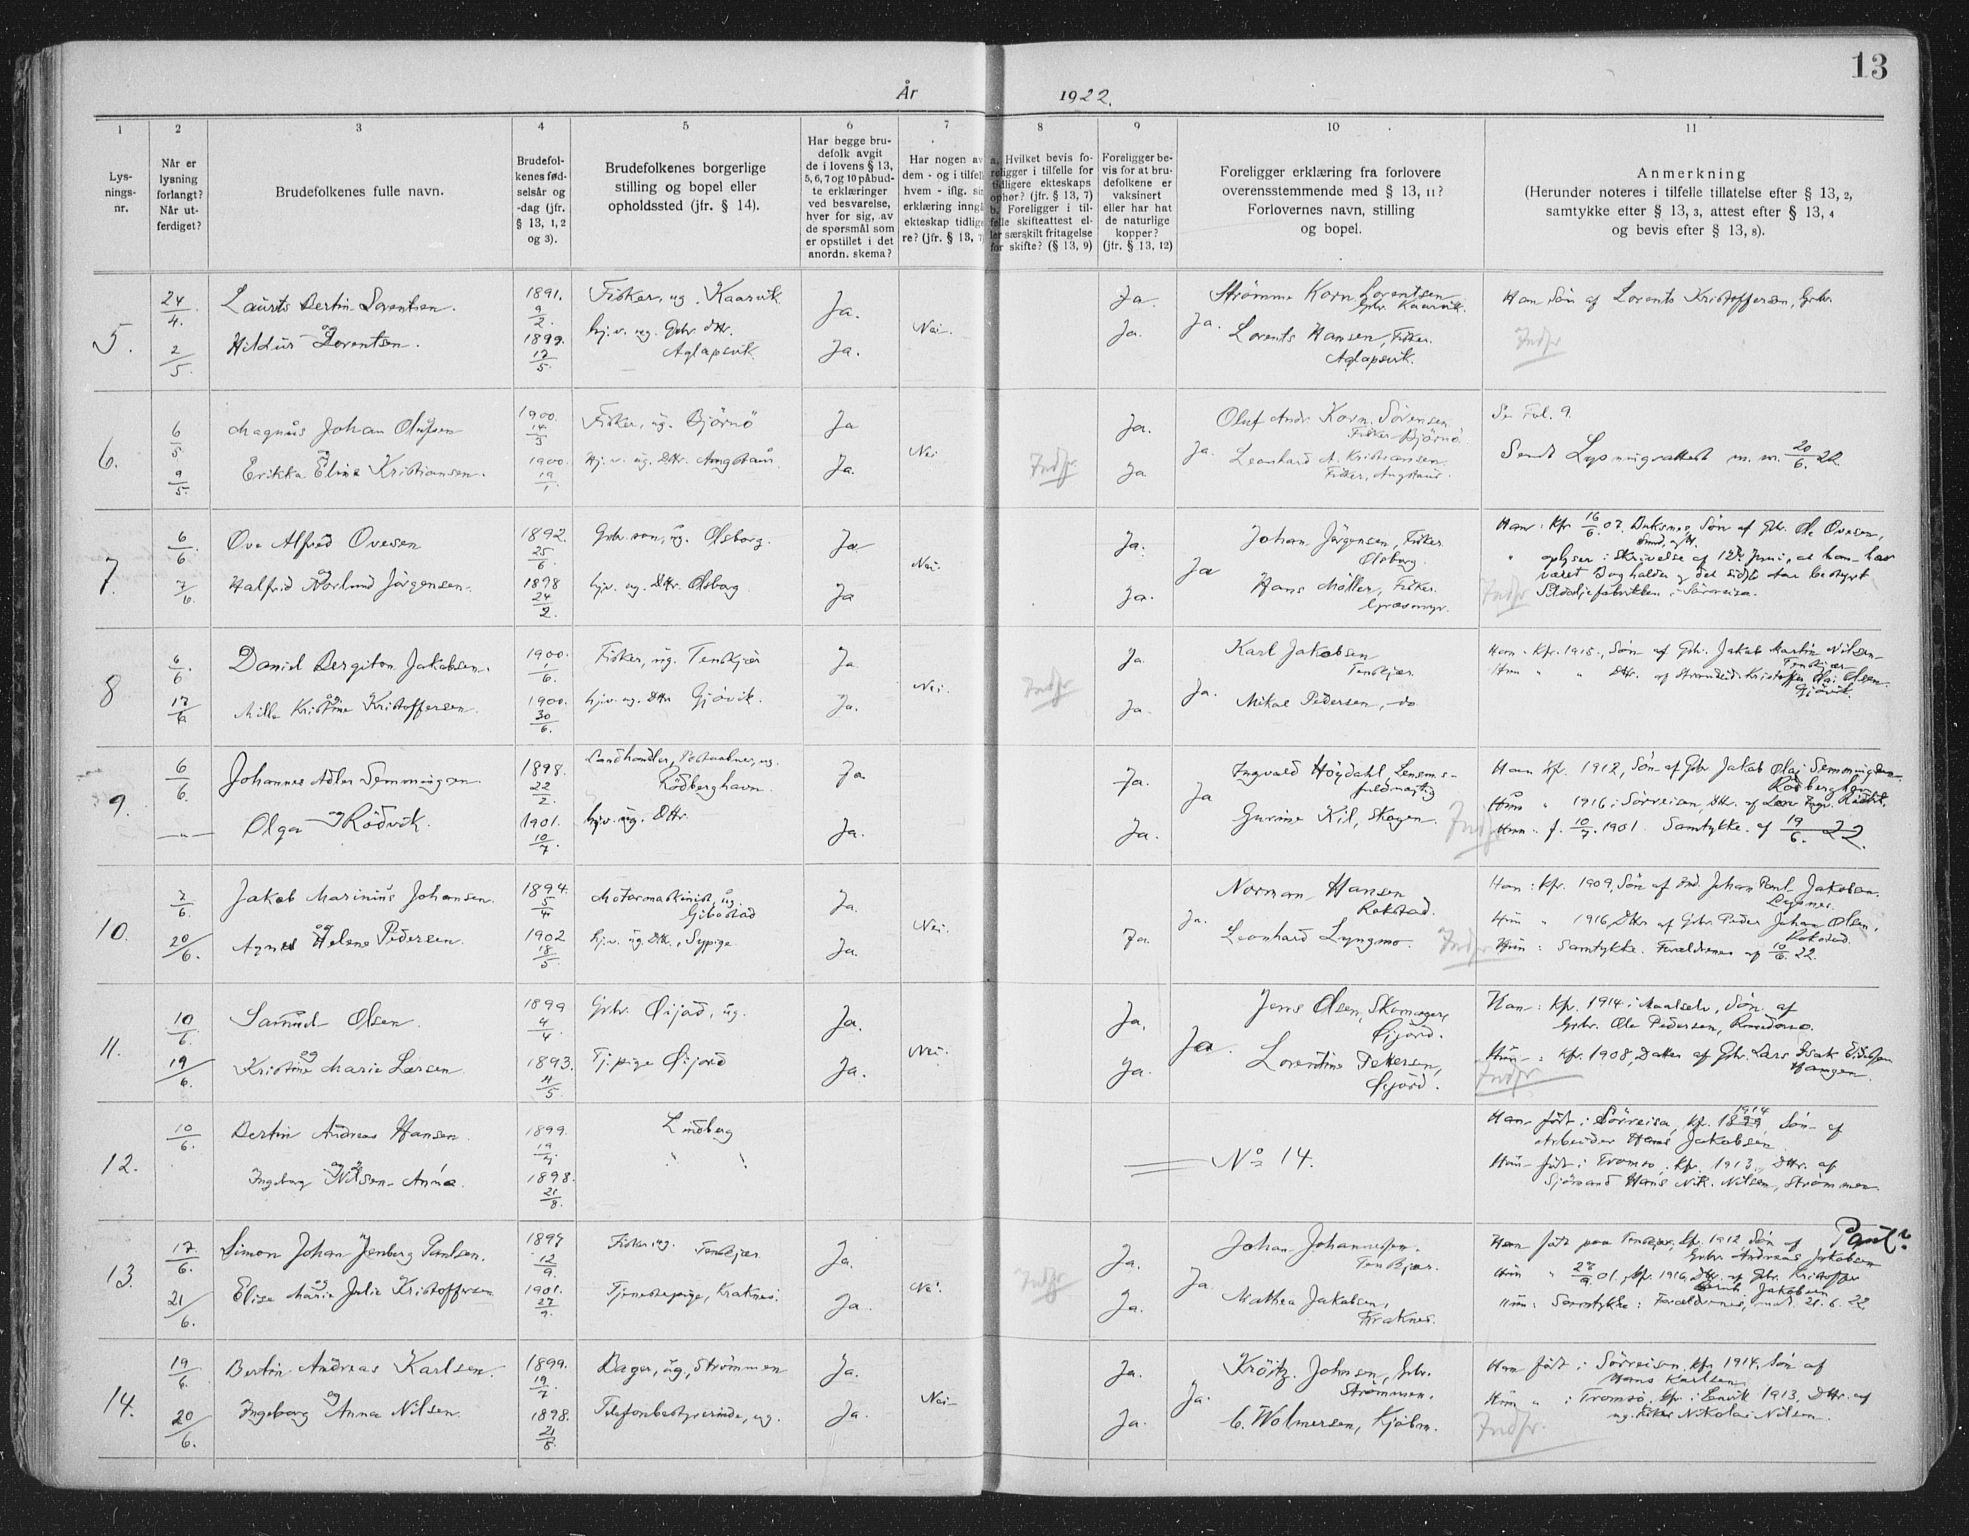 13
År 1922.
1 2 3 4 5 6 7 8 9 10 11
Lysningsnr.
Når er lysning forlangt? Når utferdiget?
Brudefolkenes fulle navn.
Brudefolkenes fødselsår og -dag (jfr. § 13, 1, 2 og 3).
Brudefolkenes borgerlige stilling og bopel eller opholdssted (jfr. § 14).
Har begge brudefolk avgit de i lovens § 13, 5, 6, 7 og 10 påbudte erklæringer ved besvarelse, hver for sig, av de spørsmål som er opstillet i det anordn. skema?
Har nogen av dem - og i tilfelle hvem - iflg. sin erklæring inngått ekteskap tidligere? (jfr. § 13, 7
a. Hvilket bevis foreligger i tilfelle for tidligere ekteskaps ophør? (jfr. § 13, 7) b. Foreligger i tilfelle skifteattest eller særskilt fritagelse for skifte? (§ 13, 9)
Foreligger bevis for at brudefolkene er vaksinert eller har hat de naturlige kopper? (jfr. § 13, 12)
Foreligger erklæring fra forlovere overensstemmende med § 13, 11? Forlovernes navn, stilling og bopel.
Anmerkning (Herunder noteres i tilfelle tillatelse efter § 13, 2, samtykke efter § 13, 3, attest efter § 13, 4 og bevis efter § 13, 8).
5.
24/4. 2/5.
Laurits Bertin Lorentsen.
og
Hildur Lorentsen.
1891. 9/2.
1899. 17/5
Fisker, ug. Kaarvik
hj.v. ug. Gbr. dtr. Aglapsvik
Ja. Ja. Nei. Ja. Ja. Ja.
Strømme Korn. Lorentsen Gbr. Kaarvik.
Lorents Hansen, Fisker. Aglapsvik.
Han Søn af Lorents Kristoffersen, Gbr.
Indfr
6.
6/5 9/5.
Magnus Johan Olufsen
og
Erikka Eline Kristiansen.
1900. 14/3
1900. 19/1
Fisker, ug. Bjørnö
Hj.v. ug. Dtr. Angstaur
Ja Ja. Nei Indfr Ja. Ja Ja.
Oluf Andr. Korn. Sörensen Fisker Björnö.
Leonhard A. Kristiansen Fisker, Angstaur.
Se Fol. 9.
Sendt Lysningsattest m. m. 20/6. 22.
7.
6/6. 7/6.
Ove Alfred Ovesen
og
Halfrid Norlund Jörgensen.
1892. 25/6.
1898 24/2.
Gbr. søn, ug. Olsborg.
hj.v. ug. Dtr. Olsborg
Ja Ja Nei. Ja. Ja. Ja
Johan Jörgensen, Fisker Olsborg
Hans Möller, Fisker. Græsmyr.
Han: Kfr 16/6. 07. Buksnes, Søn af Gbr. Ole Ovesen,
oplyser i Skrivelse af 12te Juni, at han har
været Bogholder og det sidste Aar bestyrt
Sildoljefabrikken i Sörreisa.
Indfr
8
6/6. 17/6
Daniel Bergiton Jakobsen.
og
Milla Kristine Kristoffersen.
1900. 1/6.
1900. 30/6.
Fisker, ug. Tenskjær
hj.v. ug. Dtr Gjövik.
Ja Ja. Nei. Indfr Ja. Ja. Ja.
Karl Jakobsen Tenskjær.
Mikal Pedersen, do
Han. Kfr. 1915., Søn af Gbr. Jakob Martin Nilsen Tenskjær
Hun " " Dtr. af Strandsid. Kristoffer Olai Olsen. Gjövik.
9.
6/6. —"—
Johannes Adler Semmingsen.
og
Olga Rödvik.
1898. 22/2.
1901. 10/7
Landhandler, Postaabner, ug. Rödberghavn.
hj.v. ug. Dtr.
Ja Ja. Ja. Ja. Ja
Ingvald Höydahl, Lensmsfuldmægtig
Gurine Kil, Skogen.
Han Kfr. 1912, Søn af Gbr Jakob Olai Semmingsen Rödberghavn
Hun " 1916 i Sörreisen, Dtr. af
Hun f. 10/7. 1901. Samtykke. af 19/6. 22.
Indfr
10.
7/6. 20/6.
Jakob Marinius Johansen.
og
Agnes Helene Pedersen.
1894. 5/4
1902 18/5
Motormaskinist, ug. Gibostad
hj.v. ug. Dtr., Sypige
Ja. Ja. Nei. Ja. Ja.
Norman Hansen Rokstad.
Leonhard Lyngmo.
Han: Kfr. 1909, Søn af Ind. Johan Paul Jakobsen. Lysnes.
Hun " 1916, Dtr af Gbr. Peder Johan Olsen, Rokstad.
Hun: Samtykke. Forældrenes af 10/6. 22.
Indfr
11.
10/6. 19/6.
Samuel Olsen.
og
Kristine Marie Larsen.
1899 4/4
1893. 4/5
Gbr. Öijord, ug.
Tj.pige Öijord
Ja. Ja. Nei. Ja. Ja. Ja.
Jens Olsen, Skomager, Öijord.
Lorentine Pettersen, Öijord.
Han: Kfr. 1914 i Maalselv, Søn af
Gbr. Ole Pedersen,
Hun: Kfr. 1908, Datter af Gbr. Lars Isak Hamgen.
Indfr
12.
10/6.
Bertin Andreas Hansen.
og
Ingeborg Nilsen Anna.
1899. 19/7
1898. 21/8.
Lindberg
" "
No 14.
Han født i Sörreisa, Kfr. 1899 1914, Søn af
Arbeider Hans Jakobsen
Hun født i Tromsö. Kfr. 1913, Dtr. af
Sjömand Hans Nik. Nilsen, Strömmen.
13.
17/6. 21/6.
Simon Johan Jenberg Paulsen.
og
Elise Marie Julie Kristoffersen
1897 12/9.
1901. 27/9.
Fisker ug. Tenskjær
Tjenestepige, Kraknes.
Ja. Ja. Nei. Indfr Ja. Ja. Ja.
Johan Johannessen. Tenskjær.
Mathea Jakobsen, Kraknes.
Paul?
Han født paa Tenskjær, Kfr. 1912 Søn af
Gbr. Andreas Jakobsen
Hun " 27/9. 01., Kfr. 1916, Dtr. af Gbr. Kristoffer
Bernh. Jakobsen
Hun: Samtykke: Forældrenes, 21. 6. 22
14.
19/6. 20/6.
Bertin Andreas Karlsen.
og
Ingeborg Anna Nilsen.
1899. 19/7
1898. 21/8.
Bager, ug, Strömmen
Telefonbestyrerinde, ug.
Ja. Ja. Nei Ja. Ja. Ja.
Kröitz. Johnsen, Gbr. Strömmen.
C. Wolmersen, Kjöbm.
Han født i Sörreisen, Kfr 1914, Søn af
Hans Karlsen
Hun " i Tromsö, Kfr. i Lenvik 1913, Dtr. af
ug. Fisker Nikolai Nilsen.
Indfr